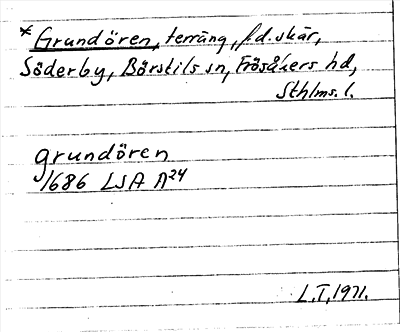 *Grundören, terräng, f.d. skär,
Söderby, Börstils sn, Frösåkers hd,
Sthlms. l.
grundören
1686 LSA A24
L.T, 1971.